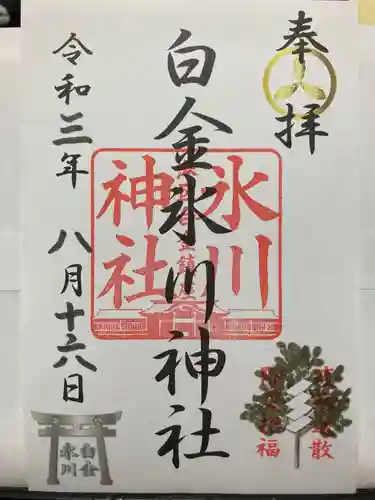 奉拝
白金氷川神社
氷川
神社
令和三年 八月十六日
白金
氷川